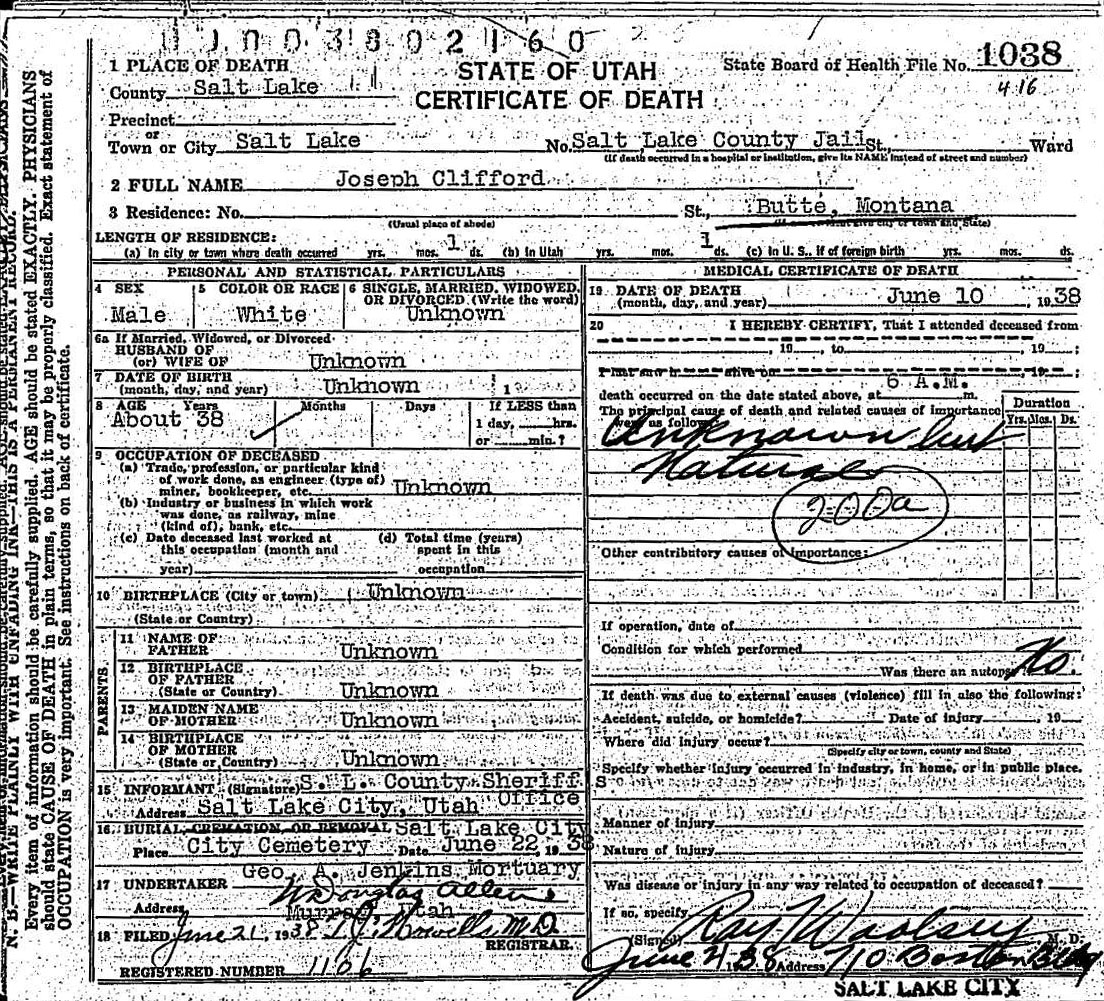 1 1 0 0 3 8 0 2 1 6 0
1 PLACE OF DEATH
STATE OF UTAH
State Board of Health File No. 1038
County Salt Lake
CERTIFICATE OF DEATH
416
Precinct
or
Town or City Salt Lake No. Salt Lake County Jail St., Ward
(If death occurred in a hospital or institution, give its NAME instead of street and number)
2 FULL NAME Joseph Clifford
3 Residence: No. St., Butte, Montana
(Usual place of abode)
LENGTH OF RESIDENCE:
(a) In city or town where death occurred yrs. mos. 1 ds. (b) In Utah yrs. mos. 1 ds. (c) In U. S., if of foreign birth yrs. mos. ds.
PERSONAL AND STATISTICAL PARTICULARS
4 SEX
Male
5 COLOR OR RACE
White
6 SINGLE, MARRIED, WIDOWED,
OR DIVORCED (Write the word)
Unknown
6a If Married, Widowed, or Divorced
HUSBAND OF
(or) WIFE OF Unknown
7 DATE OF BIRTH
(month, day, and year) Unknown 1
8 AGE Years Months Days If LESS than
About 38 1 day, hrs.
or min.?
9 OCCUPATION OF DECEASED
(a) Trade, profession, or particular kind
of work done, as engineer (type of)
miner, bookkeeper, etc. Unknown
(b) Industry or business in which work
was done, as railway, mine
(kind of), bank, etc.
(c) Date deceased last worked at
this occupation (month and
year)
(d) Total time (years)
spent in this
occupation
10 BIRTHPLACE (City or town) Unknown
(State or Country)
PARENTS
11 NAME OF
FATHER Unknown
12 BIRTHPLACE
OF FATHER
(State or Country) Unknown
13 MAIDEN NAME
OF MOTHER Unknown
14 BIRTHPLACE
OF MOTHER
(State or Country) Unknown
15 INFORMANT (Signature) S. L. County Sheriff
Office
Address Salt Lake City, Utah
16 BURIAL, CREMATION, OR REMOVAL Salt Lake City
Place City Cemetery Date June 22, 1938
Geo. A. Jenkins Mortuary
17 UNDERTAKER W Douglas Allen
Address Murray Utah
18 FILED June 21, 1938 M.D.
REGISTRAR.
REGISTERED NUMBER 1106
MEDICAL CERTIFICATE OF DEATH
19 DATE OF DEATH
(month, day, and year) June 10, 1938
20 I HEREBY CERTIFY, That I attended deceased from
19 , to , 19 ;
that I last saw h alive on , 19 ;
death occurred on the date stated above, at 6 A.M. m.
The principal cause of death and related causes of importance
were as follows:
Duration
Yrs. Mos. Ds.
Unknown but
Natural
200a
Other contributory causes of importance:
If operation, date of
Condition for which performed
Was there an autopsy No.
If death was due to external causes (violence) fill in also the following:
Accident, suicide, or homicide? Date of injury , 19
Where did injury occur?
(Specify city or town, county and State)
Specify whether injury occurred in industry, in home, or in public place.
Manner of injury
Nature of injury
Was disease or injury in any way related to occupation of deceased?
If so, specify
(Signed) Ray Woolsey M. D.
June 21 1938 Address 710 Boston Bldg
SALT LAKE CITY
N. B.—WRITE PLAINLY WITH UNFADING INK—THIS IS A PERMANENT RECORD.
Every item of information should be carefully supplied. AGE should be stated EXACTLY. PHYSICIANS
should state CAUSE OF DEATH in plain terms, so that it may be properly classified. Exact statement of
OCCUPATION is very important. See instructions on back of certificate.